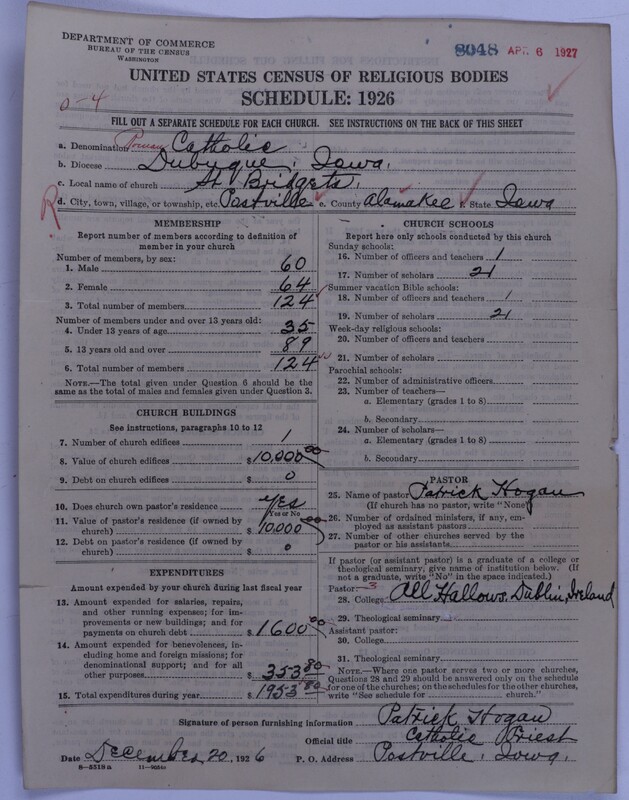 DEPARTMENT OF COMMERCE
BUREAU OF THE CENSUS
WASHINGTON
8048 APR 6 1927
UNITED STATES CENSUS OF RELIGIOUS BODIES
SCHEDULE: 1926
0-4
FILL OUT A SEPARATE SCHEDULE FOR EACH CHURCH. SEE INSTRUCTIONS ON THE BACK OF THIS SHEET
a. Denomination Roman Catholic
b. Diocese Dubuque, Iowa.
c. Local name of church St Bridgets.
d. City, town, village, or township, etc. Postville e. County Alamakee f. State Iowa
R
MEMBERSHIP
Report number of members according to definition of
member in your church
Number of members, by sex:
1. Male 60
2. Female 64
3. Total number of members 124
Number of members under and over 13 years old:
4. Under 13 years of age 35
5. 13 years old and over 89
6. Total number of members 124
NOTE.—The total given under Question 6 should be
the same as the total of males and females given under Question 3.
CHURCH BUILDINGS
See instructions, paragraphs 10 to 12
7. Number of church edifices 1
8. Value of church edifices $10,000 00
9. Debt on church edifices $ 0
10. Does church own pastor's residence yes
Yes or No
11. Value of pastor's residence (if owned by
church) $10,000 00
12. Debt on pastor's residence (if owned by
church) $ 0
EXPENDITURES
Amount expended by your church during last fiscal year
13. Amount expended for salaries, repairs,
and other running expense; for im-
provements or new buildings; and for
payments on church debt $1600 00
14. Amount expended for benevolences, in-
cluding home and foreign missions; for
denominational support; and for all
other purposes $353.80
15. Total expenditures during year $1953.80
CHURCH SCHOOLS
Report here only schools conducted by this church
Sunday schools:
16. Number of officers and teachers 1
17. Number of scholars 21
Summer vacation Bible schools:
18. Number of officers and teachers 1
19. Number of scholars 21
Week-day religious schools:
20. Number of officers and teachers
21. Number of scholars
Parochial schools:
22. Number of administrative officers
23. Number of teachers—
a. Elementary (grades 1 to 8)
b. Secondary
24. Number of scholars—
a. Elementary (grades 1 to 8)
b. Secondary
PASTOR
25. Name of pastor Patrick Hogan
(If church has no pastor, write "None")
26. Number of ordained ministers, if any, em-
ployed as assistant pastors
27. Number of other churches served by the
pastor or his assistants
If pastor (or assistant pastor) is a graduate of a college or
theological seminary, give name of institution below. (If
not a graduate, write "No" in the space indicated.)
Pastor: 3
28. College All Hallows. Dublin, Ireland
29. Theological seminary
Assistant pastor:
30. College
31. Theological seminary
NOTE.—Where one pastor serves two or more churches,
Questions 28 and 29 should be answered only on the schedule
for one of the churches; on the schedules for the other churches,
write "See schedule for church."
Signature of person furnishing information Patrick Hogan
Official title Catholic Priest
Date December 20, 1926 P. O. Address Postville, Iowa.
8-5518a